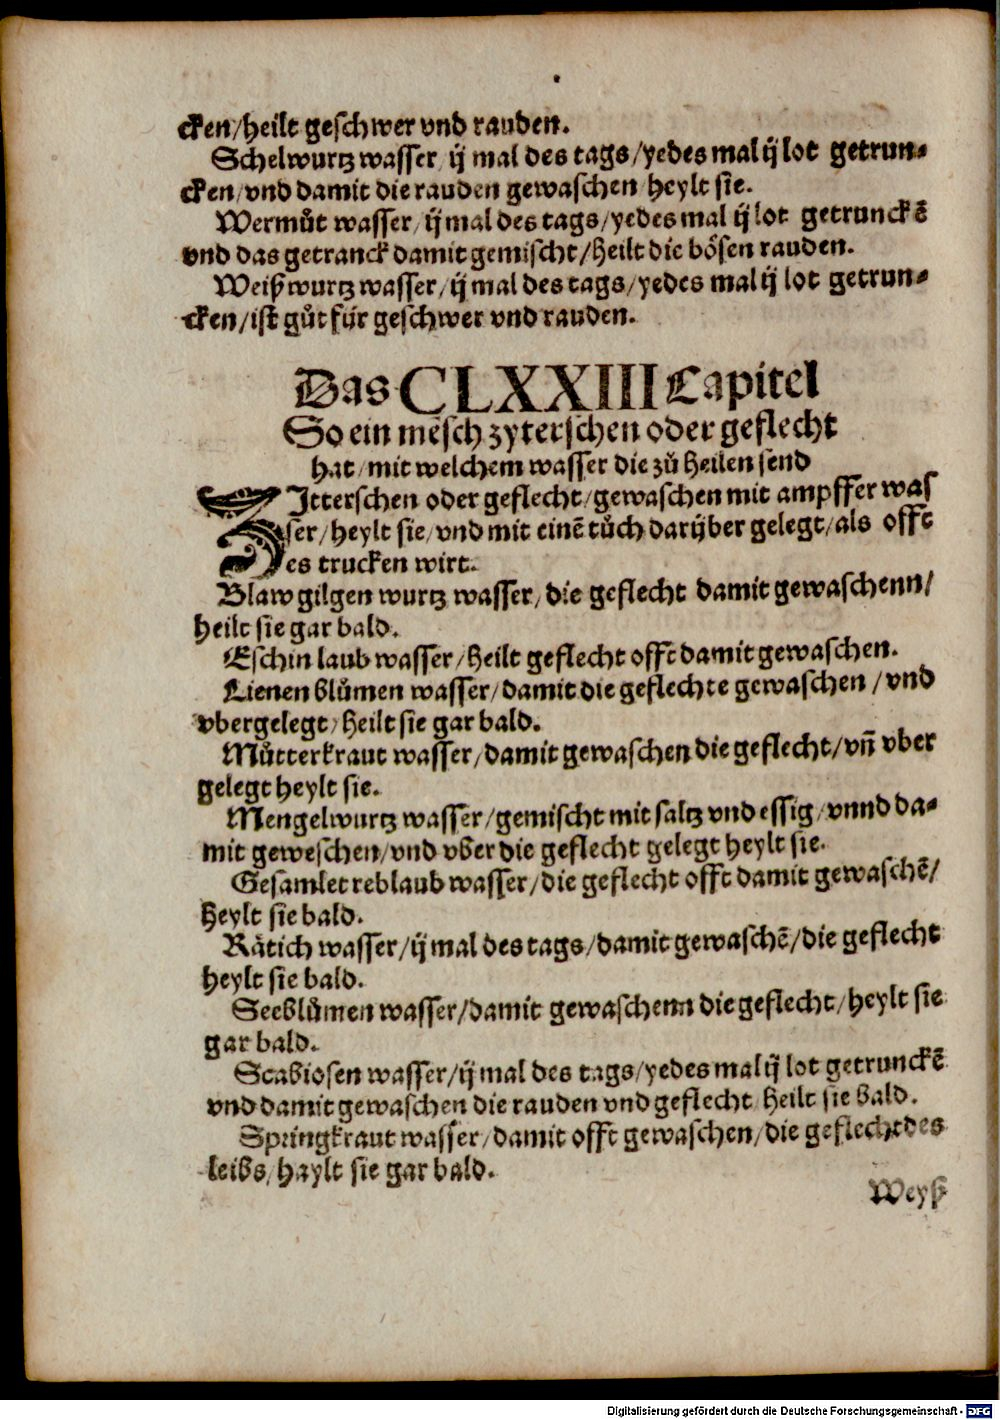 cken/heilt geschwer vnd rauden.
Schelwurtz wasser/ ij mal des tags/yedes mal ij lot getrun-
cken/vnd damit die rauden gewaschen/heylt sie.
Wermůt wasser/ij mal des tags/yedes mal ij lot getrunckẽ
vnd das getranck damit gemischt/heilt die bösen rauden.
Weißwurtz wasser/ij mal des tags/yedes mal ij lot getrun-
cken/ist gůt für geschwer vnd rauden.
Das CLXXIII Capitel
So ein mẽsch zyterschen oder geflecht
hat/mit welchem wasser die zů heilen send
ZItterschen oder geflecht/gewaschen mit ampffer was
ser/heylt sie/vnd mit einẽ tůch darüber gelegt/als offt
es trucken wirt.
Blaw gilgen wurtz wasser/die geflecht damit gewaschenn/
heilt sie gar bald.
Eschin laub wasser/heilt geflecht offt damit gewaschen.
Lienen blůmen wasser/damit die geflechte gewaschen/vnd
vbergelegt/heilt sie gar bald.
Můtterkraut wasser/damit gewaschen die geflecht/vñ vber
gelegt heylt sie.
Mengelwurtz wasser/gemischt mit saltz vnd essig/vnnd da-
mit geweschen/vnd vber die geflecht gelegt heylt sie.
Gesamlet reblaub wasser/die geflecht offt damit gewaschẽ/
heylt sie bald.
Rätich wasser/ij mal des tags/damit gewaschẽ/die geflecht
heylt sie bald.
Seeblůmen wasser/damit gewaschenn die geflecht/heylt sie
gar bald.
Scabiosen wasser/ij mal des tags/yedes mal ij lot getrunckẽ
vnd damit gewaschen die rauden vnd geflecht/heilt sie bald.
Springkraut wasser/damit offt gewaschen/die geflecht des
leibs/haylt sie gar bald.
Weyß
Digitalisierung gefördert durch die Deutsche Forschungsgemeinschaft - DFG